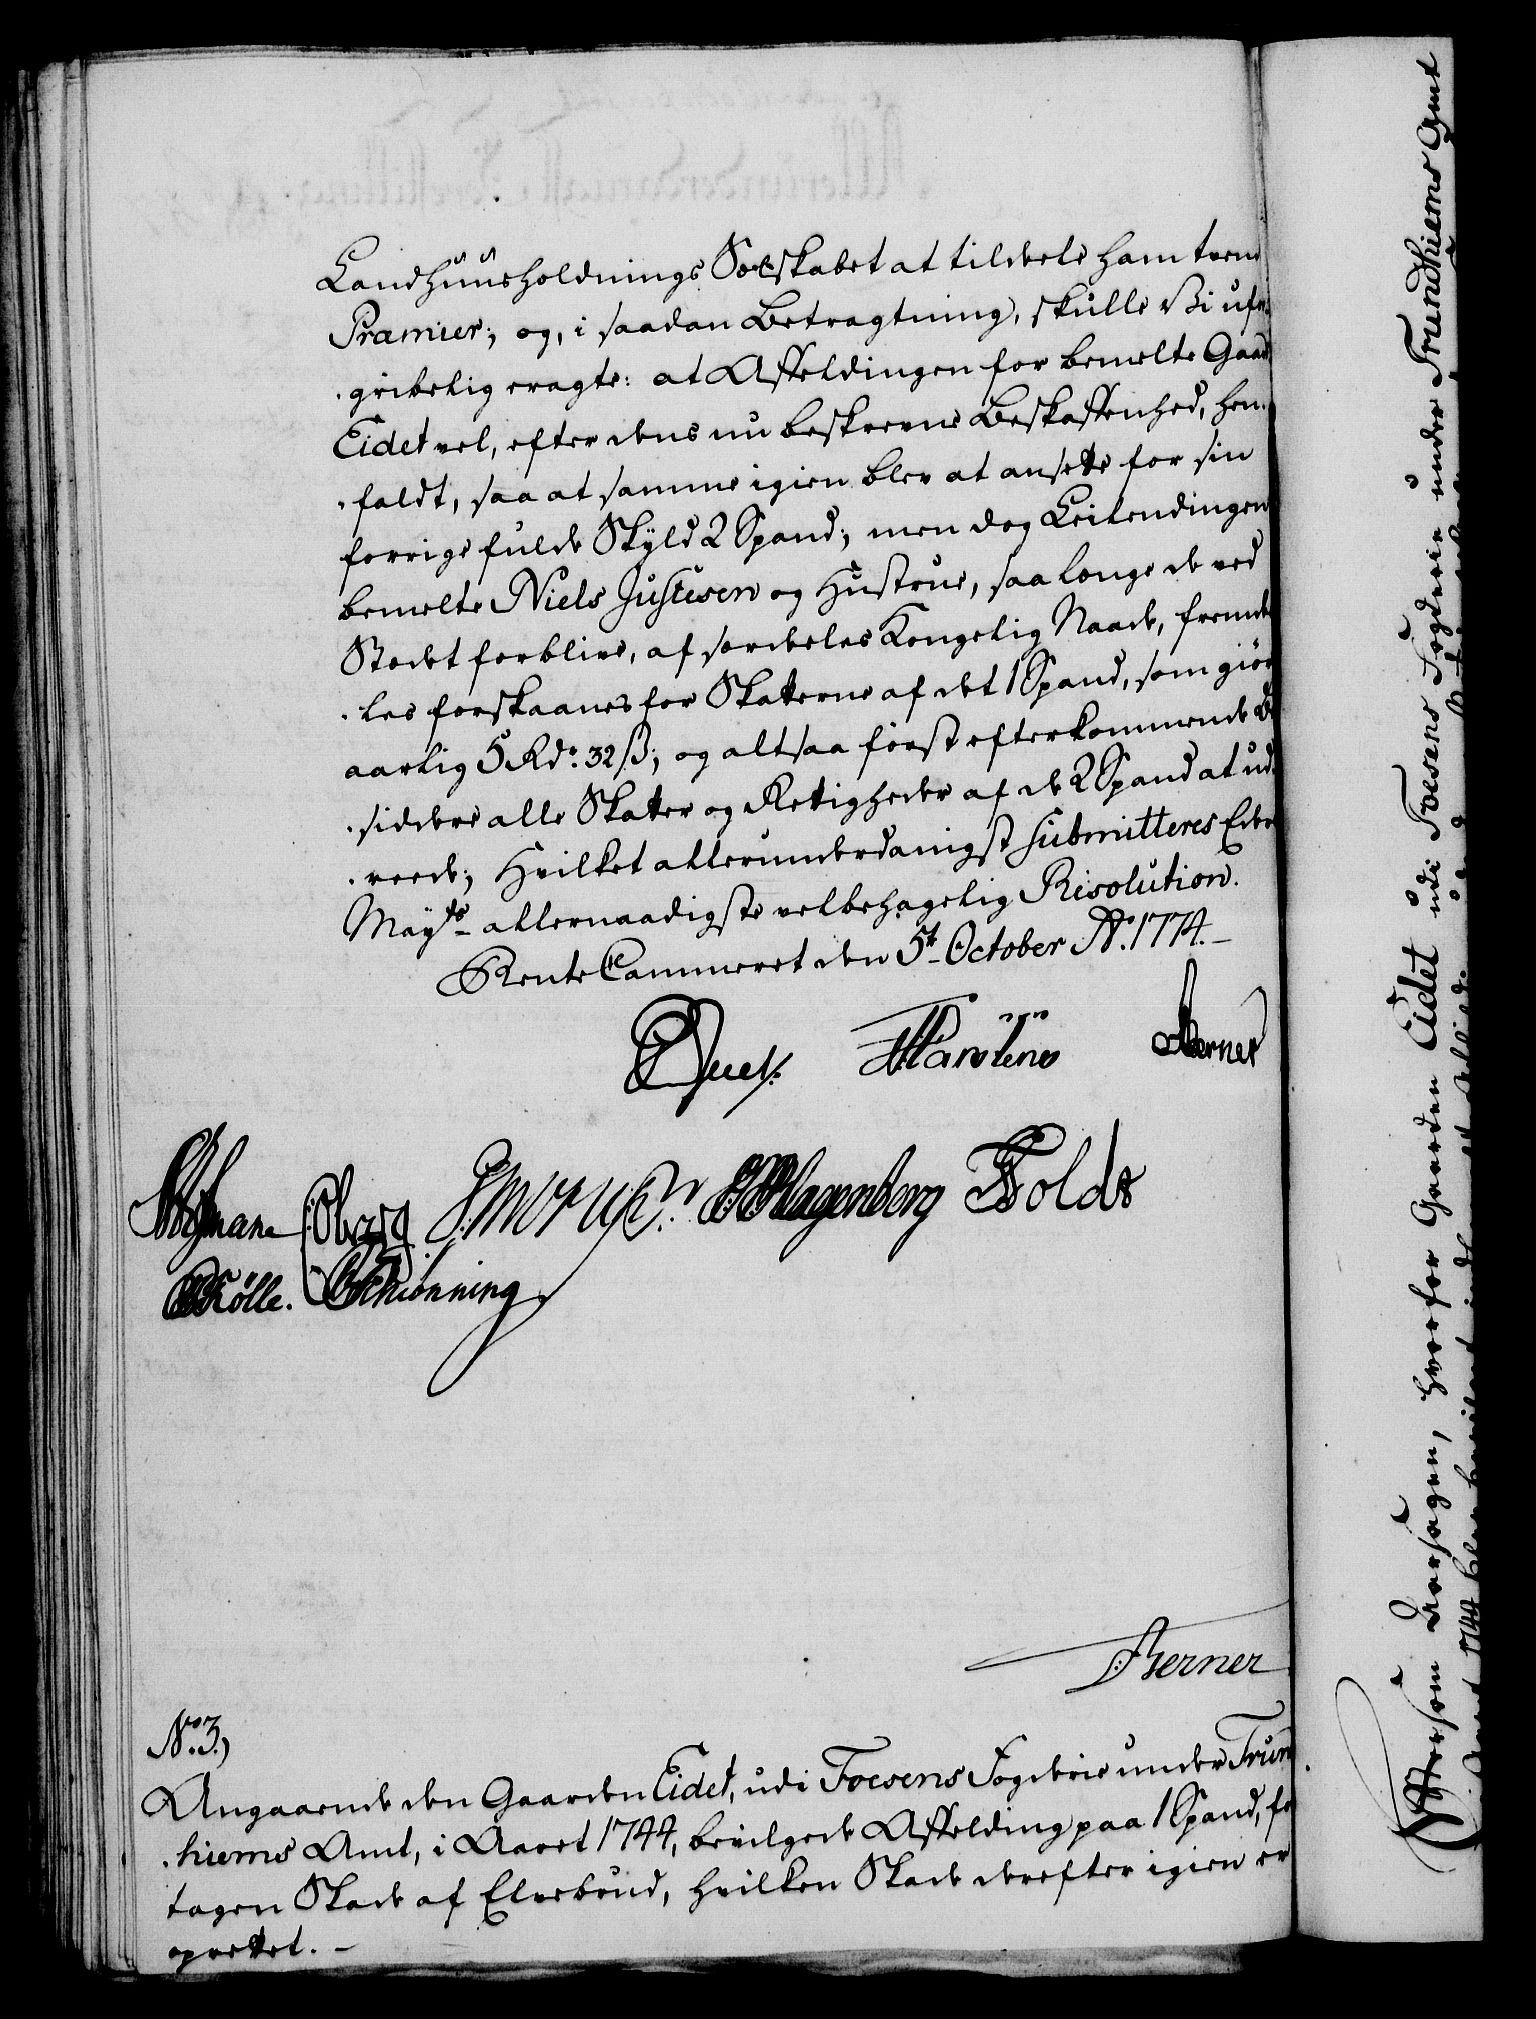 Landhuusholdnings Selskabet at tildeele ham tvend
Præmier; og, i saadan Betragtning, skulle Vi ufor
gribelig eragte: at Affældingen for bemelte Gaar
Eidet vel, efter dens nu beskrevne Beskaffenhed, hen
faldt, saa at samme igien blev at ansette for sin
forrige fulde Skyld 2 Spand; men dog Leilendingen
bemelte Niels Justesen og Hustrue, saa længe de ved
Stædet forblive, af særdeles Kongelig Naade, fremde
les forskaanes for Skatterne af det 1 Spand, som giør
aarlig 5 Rd: 32 ß; og altsaa først efterkommende Be
siddere alle Skatter og Rettigheder af de 2 Spand at ud
reede; Hvilket allerunderdanigst submitteres Eders
Mayts allernaadigste velbehagelig Resolution.
Rente Cammeret den 5t October Ao. 1774.
Martens Berner
Oberg Schiønning Klagenberg Foldt
Kølle.
Berner
No. 3.)
Angaaende den Gaarden Eidet, udi Foesens Fogderie under Trun
hiems Amt, i Aaret 1744, bevilgede Affælding paa 1 Spand, for
tagen Skade af Elvebrud, hvilken Skade derefter igien er
oprettet.
Eftersom Aarsagen, hvorfor Gaarden Eidet udi Foesens Fogderie under Trundhiems Amt